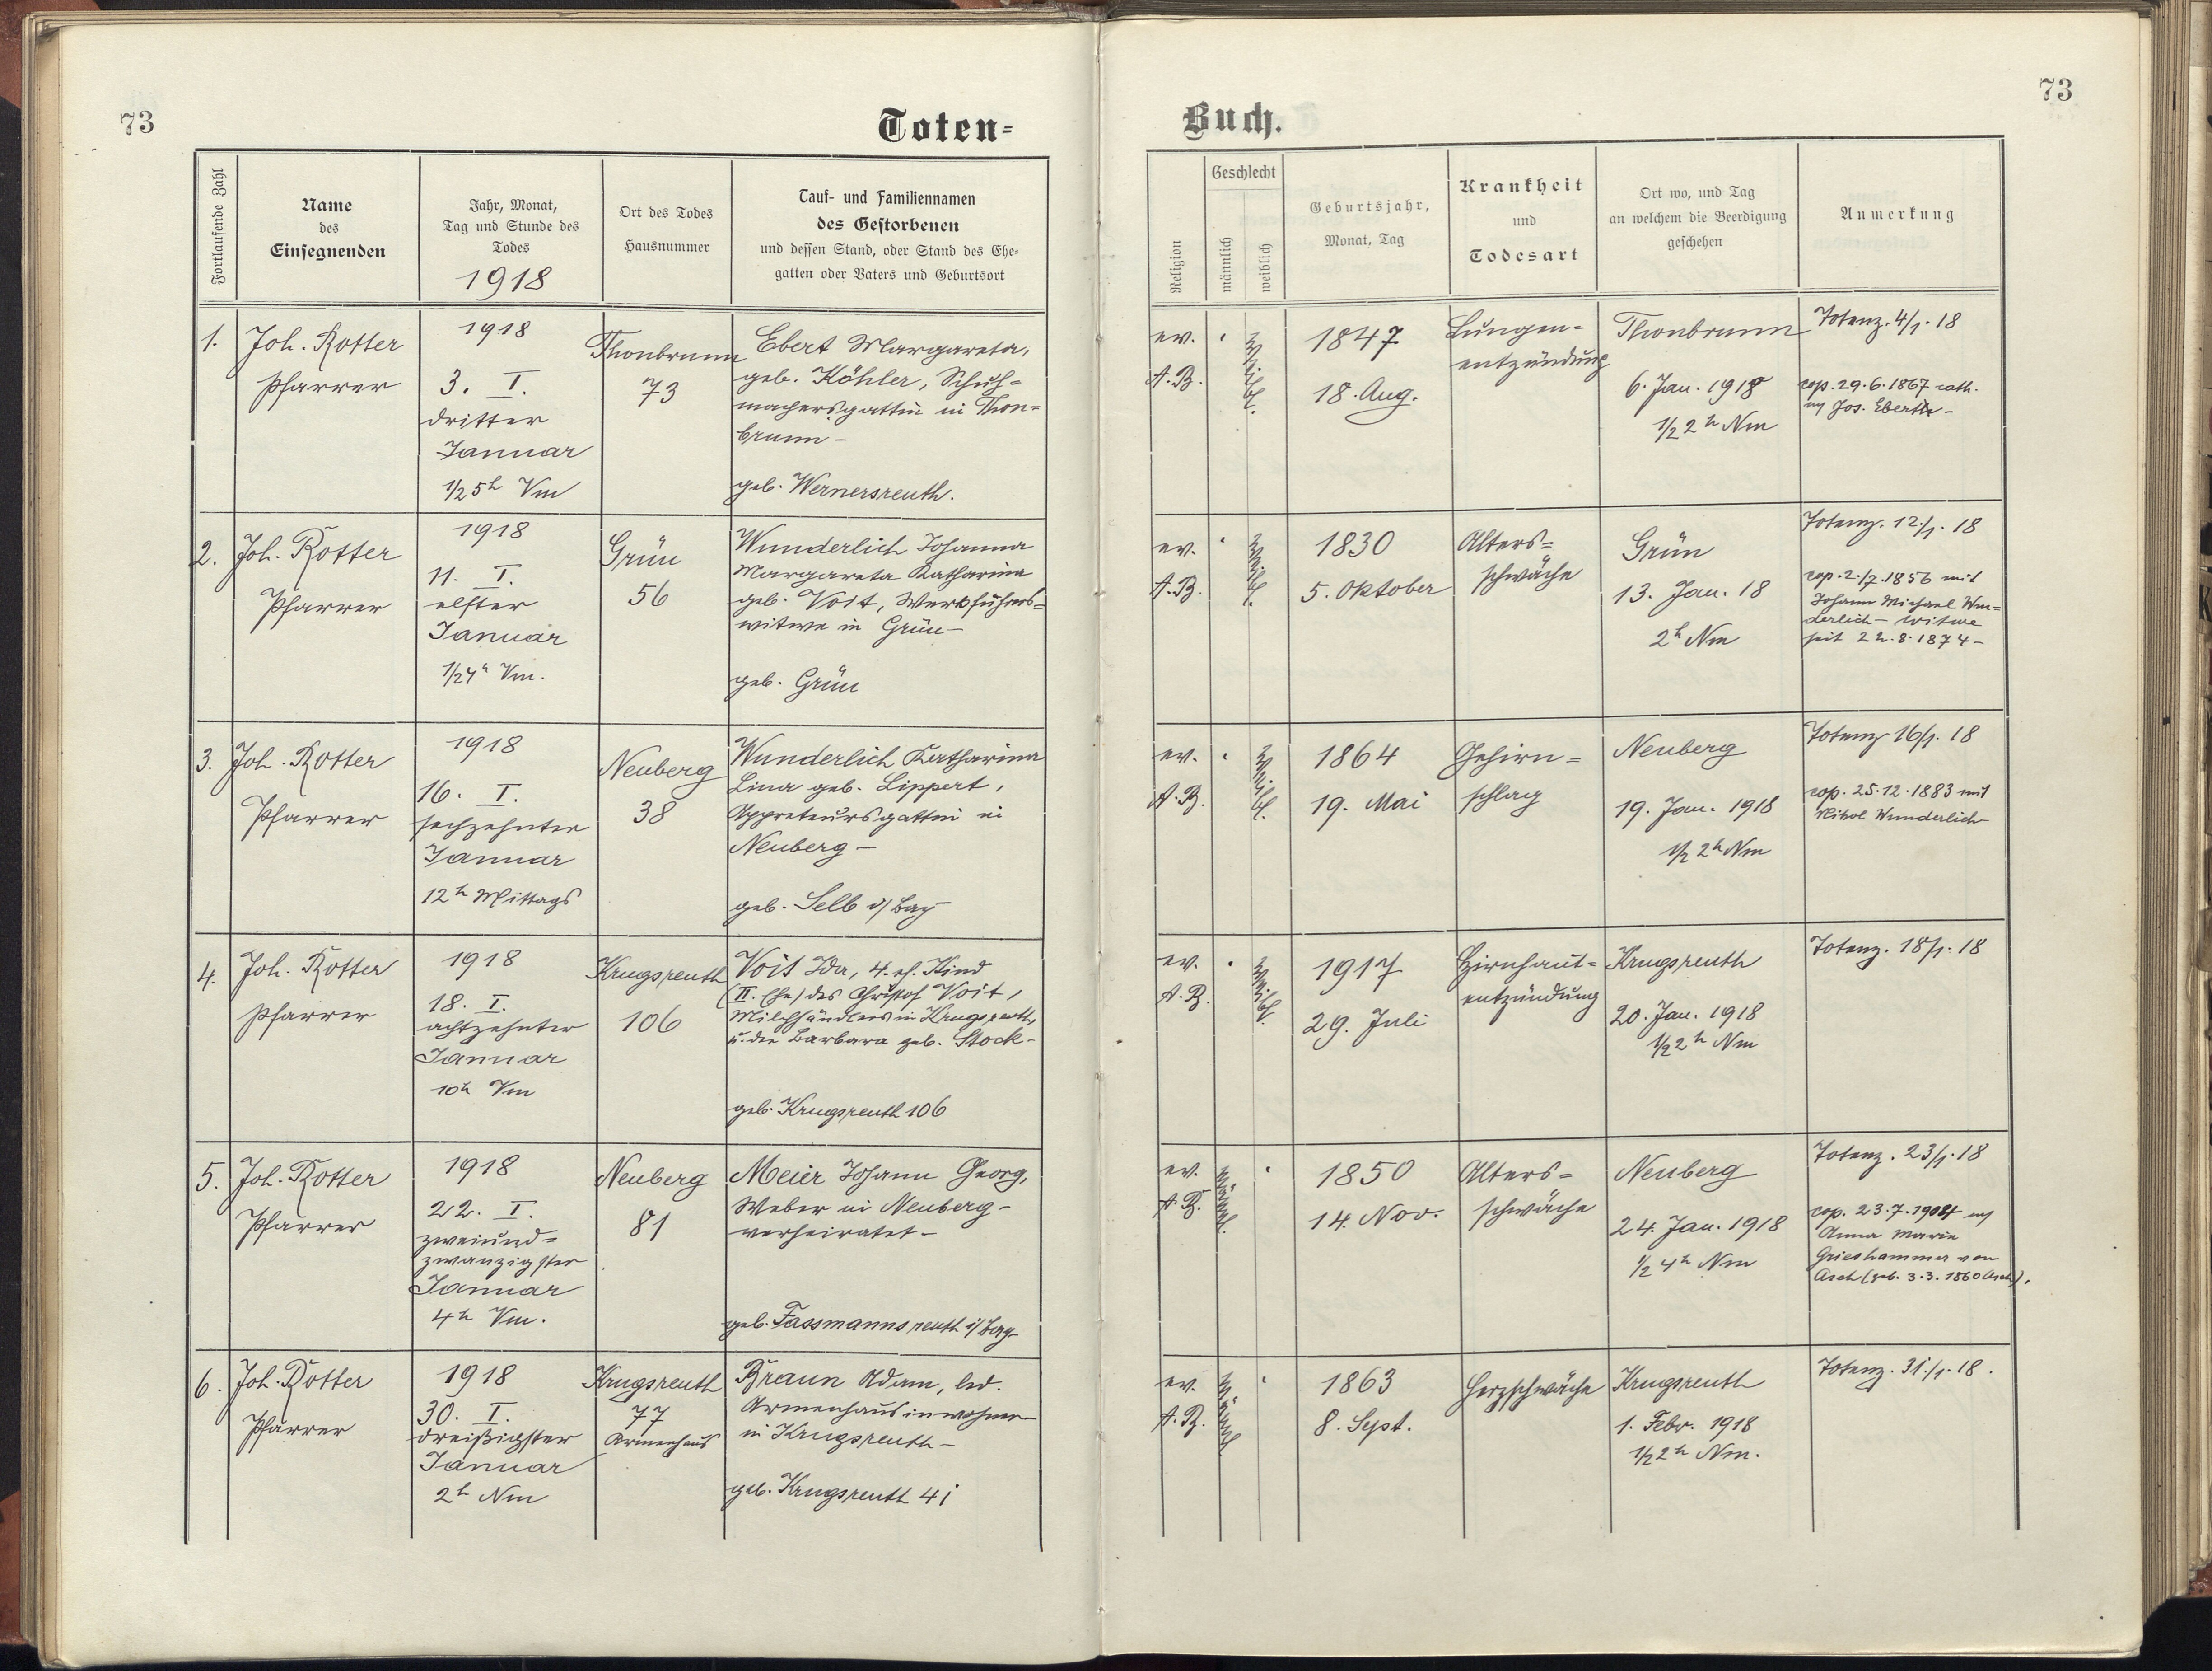 73
Toten-
Fortlaufende Zahl
Name
des
Einsegnenden
Jahr, Monat,
Tag und Stunde des
Todes
1918
Ort des Todes
Hausnummer
Tauf- und Familiennamen
des Gestorbenen
und dessen Stand, oder Stand des Ehe-
gatten oder Vaters und Geburtsort
1.
Joh. Rotter
Pfarrer
1918
3. I.
dritter
Januar
1/2 5h Vm
Thonbrunn
73
Ebert Margareta,
geb. Köhler, Schuh-
machersgattin in Thon-
brunn –
geb. Wernersreuth.
2.
Joh. Rotter
Pfarrer
1918
11. I.
elfter
Januar
Vm.
Grün
56
Wunderlich Johanna
Margareta Katharina
geb. Voit, Werkführers-
witwe in Grün –
geb. Grün
3.
Joh. Rotter
Pfarrer
1918
16. I.
sechzehnter
Januar
12h Mittags
Neuberg
38
Wunderlich Katharina
Lina geb. Lippert,
Appreteursgattin in
Neuberg –
geb. Selb i/Bay
4.
Joh. Rotter
Pfarrer
1918
18. I.
achtzehnter
Januar
10h Vm
Krugsreuth
106
Voit Ida, 4. eh. Kind
(II. Ehe) des Christof Voit,
Milchhändlers in Krugsreuth,
u. der Barbara geb. Stock –
geb. Krugsreuth 106
5.
Joh. Rotter
Pfarrer
1918
22. I.
zweiund-
zwanzigster
Januar
4h Vm.
Neuberg
81
Meier Johann Georg,
Weber in Neuberg –
verheiratet –
geb. Fassmannsreuth i/Bay
6.
Joh. Rotter
Pfarrer
1918
30. I.
dreißigster
Januar
2h Nm
Krugsreuth
77
Armenhaus
Braun Adam, led.
Armenhausinwohner
in Krugsreuth –
geb. Krugsreuth 41
73
Buch.
Religion
Geschlecht
männlich
weiblich
Geburtsjahr,
Monat, Tag
Krankheit
und
Todesart
Ort wo, und Tag
an welchem die Beerdigung
geschehen
Anmerkung
ev.
A.B.
weibl.
1847
18. Aug.
Lungen-
entzündung
Thonbrunn
6. Jan. 1918
1/2 2h Nm
Totenz. 4/1. 18
cop. 29.6.1867 cath.
Jos. Ebert –
ev.
A.B.
weibl.
1830
5. Oktober
Alters-
schwäche
Grün
13. Jan. 18
2h Nm
Totenz. 12/1. 18
cop. 2./7. 1856 mit
Johann Michael Wun-
derlich – Witwe
seit 22.8.1874 –
ev.
A.B.
weibl.
1864
19. Mai
Gehirn-
schlag
Neuberg
19. Jan. 1918
1/2 2h Nm
Totenz 16/1. 18
cop. 25.12.1883 mit
Nikol Wunderlich
ev.
A.B.
weibl.
1917
29. Juli
Hirnhaut-
entzündung
Krugsreuth
20. Jan. 1918
1/2 2h Nm
Totenz. 18/1. 18
ev.
A.B.
männl.
1850
14. Nov.
Alters-
schwäche
Neuberg
24. Jan. 1918
1/2 4h Nm
Totenz. 23/1. 18
cop. 23.7.1904
Anna Marie
Grieshammer von
Asch (geb. 3.3.1860 Asch).
ev.
A.B.
männl.
1863
8. Sept.
Herzschwäche
Krugsreuth
1. Febr. 1918
1/2 2h Nm.
Totenz. 31./1. 18.